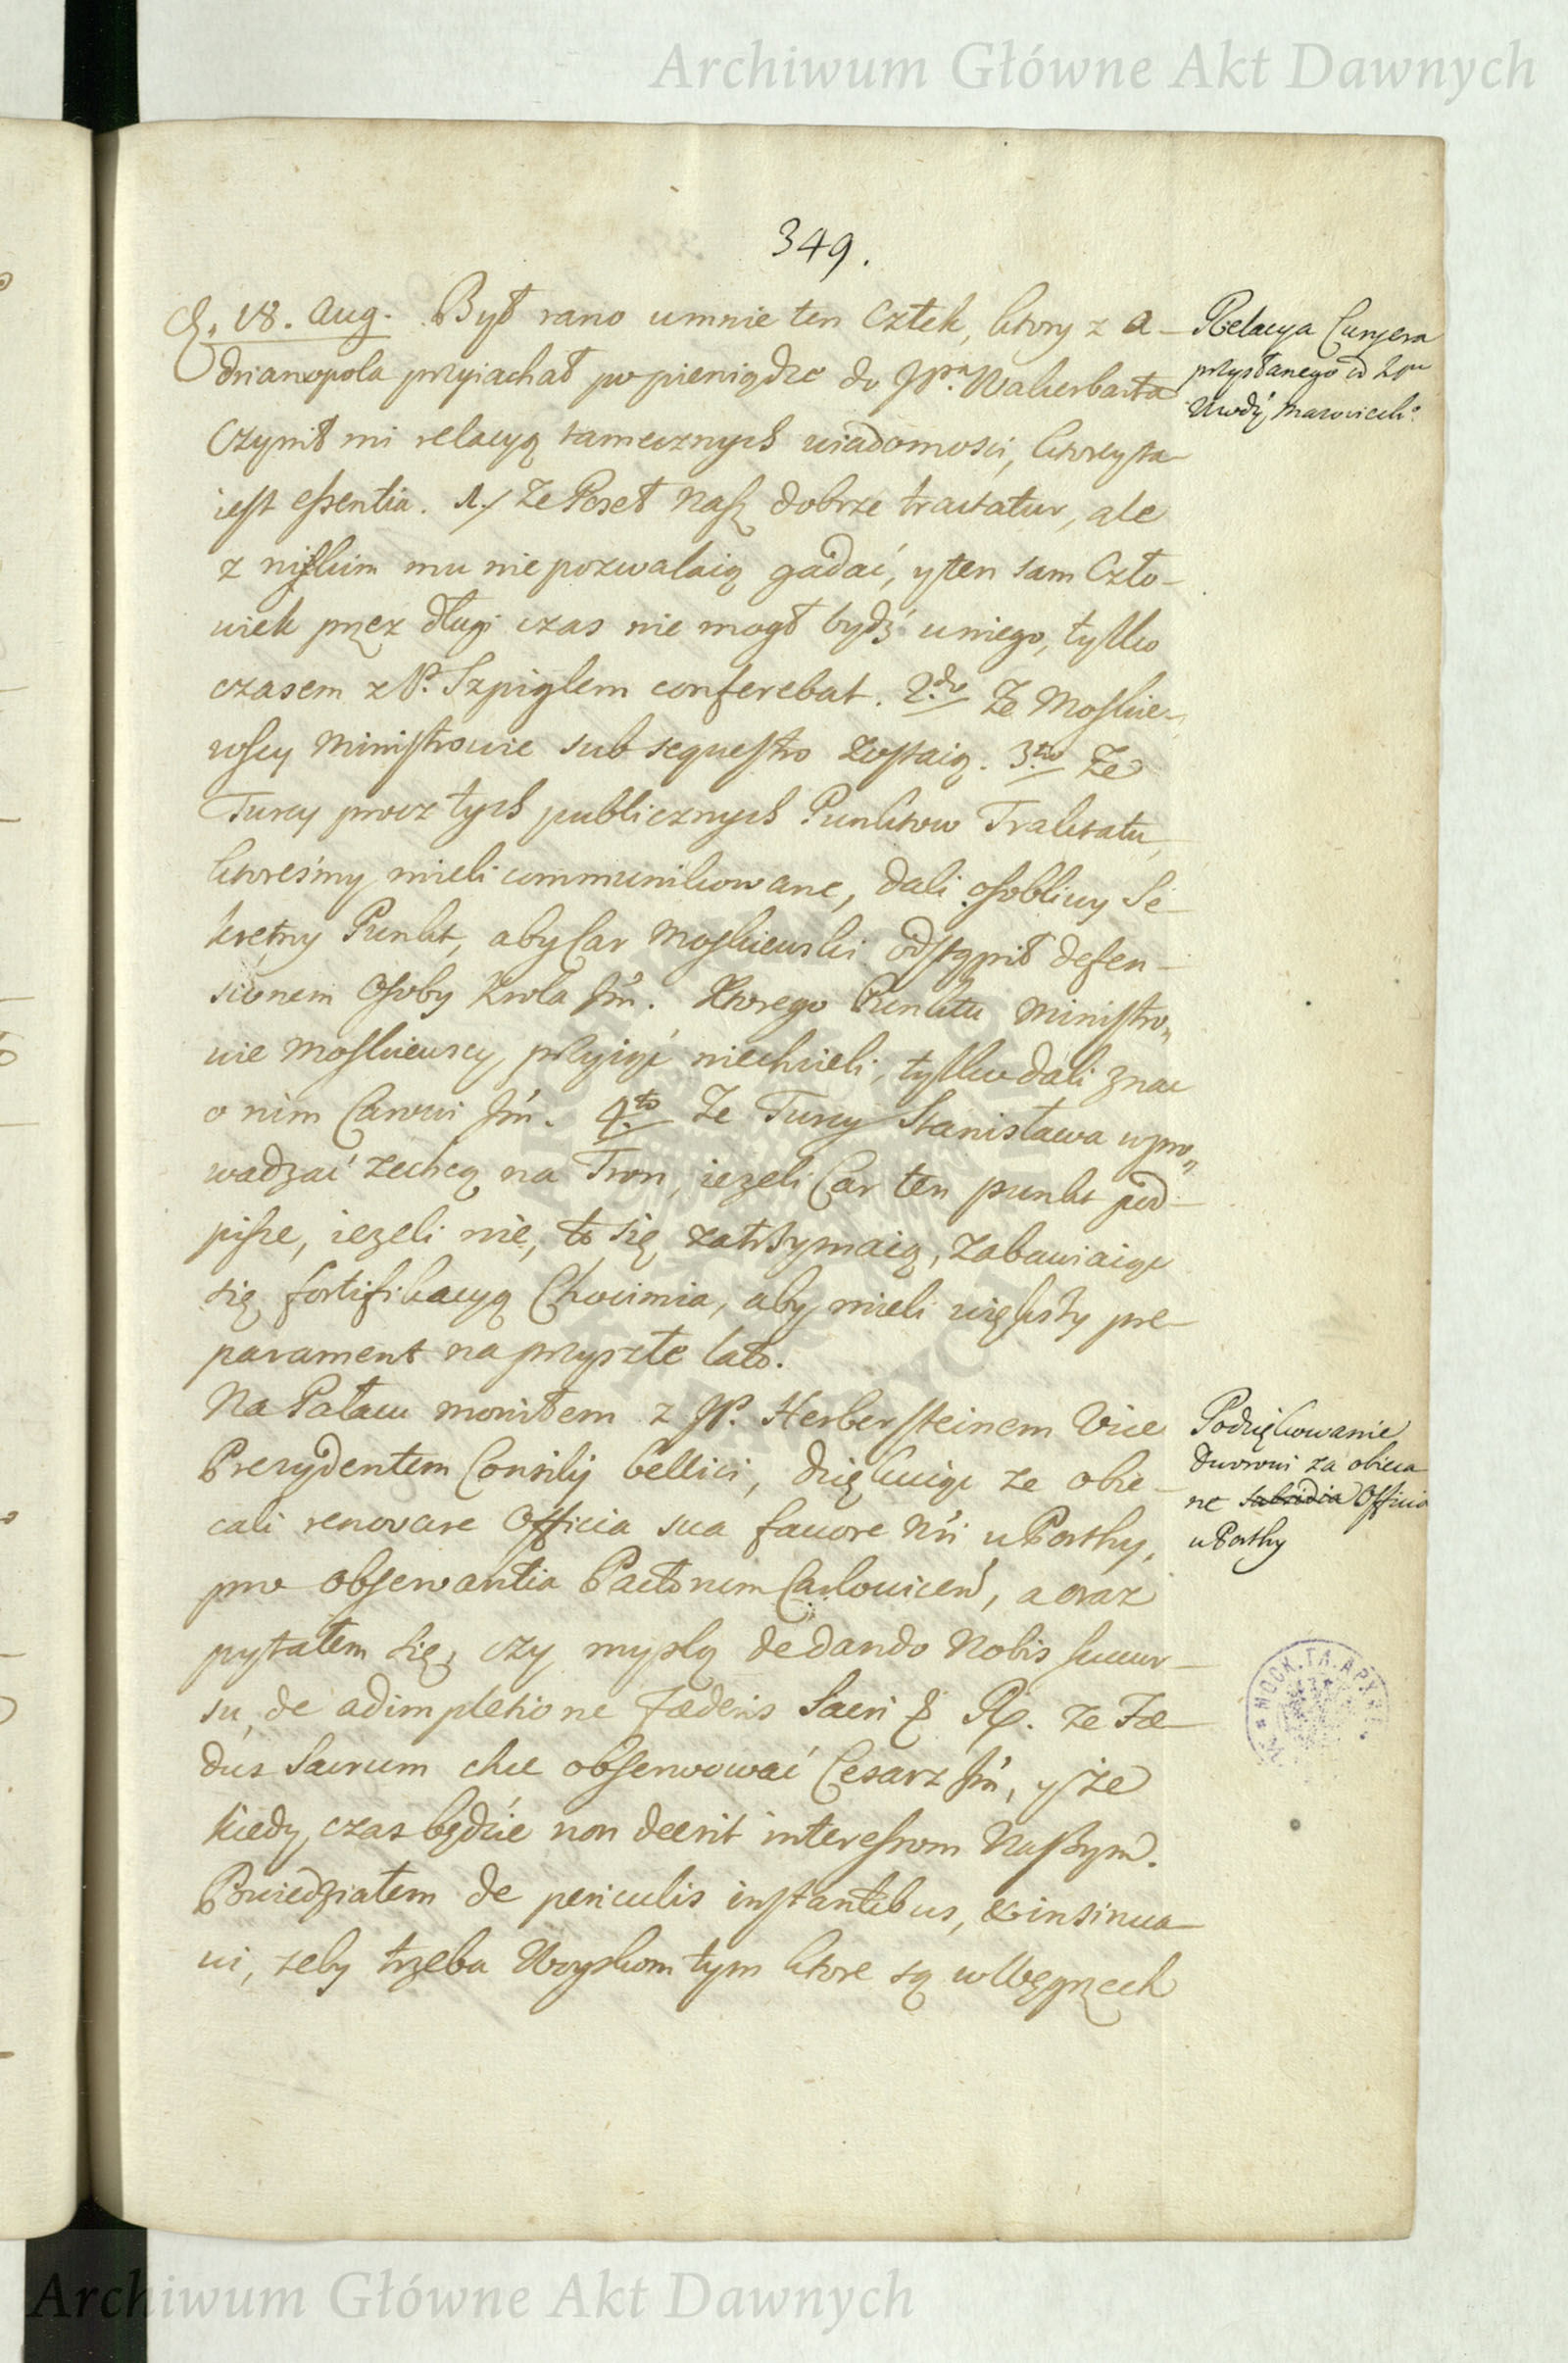 Archiwum Główne Akt Dawnych
349.
d. 18. Aug. Był rano umnie ten Cztek, ktory z A-
drianopola przyiachał po pieniądze do JPna Wakerbarta
Czynił mi relacyą tamecznych wiadomosci, ktorey ta
iest essentia. 1./ Ze Poseł Nasz dobrze tractatur, ale
z niskim mu nie pozwalaią gadać, y ten sam Czło-
wiek przez długi czas nie mogł bydź uniego, tylko
czasem z P. Szpiglem conferebat. 2do Ze Moskie-
wscy Ministrowie sub sequestro zostaią. 3tio Ze
Turcy procz tych publicznych Punktow Traktatu,
ktoreśmy mieli communikowane, dali osobliwy Se-
kretny Punkt, aby Car Moskiewski odstąpił defen-
sionem Osoby Krola Jm. Ktorego Punktu Ministro-
wie Moskiewscy przyiąć niechcieli, tylko dali znac
o nim Carowi Jm. 4to Ze Turcy Stanisława wpro-
wadzać zechcą na Tron, iezeli Car ten punkt pod-
pisze, iezeli nie, to się zatrzymaią, zabawiaiąc
się fortifikacyą Chocimia, aby mieli większy pre-
parament na przyszłe lato.
Na Pałacu mowiłem z JP. Herbersteinem Vice
Prezydentem Consilij bellici, dziękuiąc ze obie-
cali renovare Officia sua favore Nri u Porthy,
pro observantia Pactorum Carlovicen, a oraz
pytałem się, czy myslą de dando Nobis succur-
su, de adimpletione Fœderis Sacri & Rp. ze Fœ-
dus Sacrum chce obserwować Cesarz Jm, y że
kiedy czas będzie non deerit interessom Naszym.
Powiedziałem de periculis instantibus, & insinua-
vi, zeby trzeba Woyskom tym ktore są w Węgrzech
Relacya Curyera
przysłanego od JPna
Wwdy Mazowieck°
Podziękowanie
Dworowi za obieca
ne subsidia Officia
u Porthy
MOCK. ГЛ. АРХ
Archiwum Główne Akt Dawnych